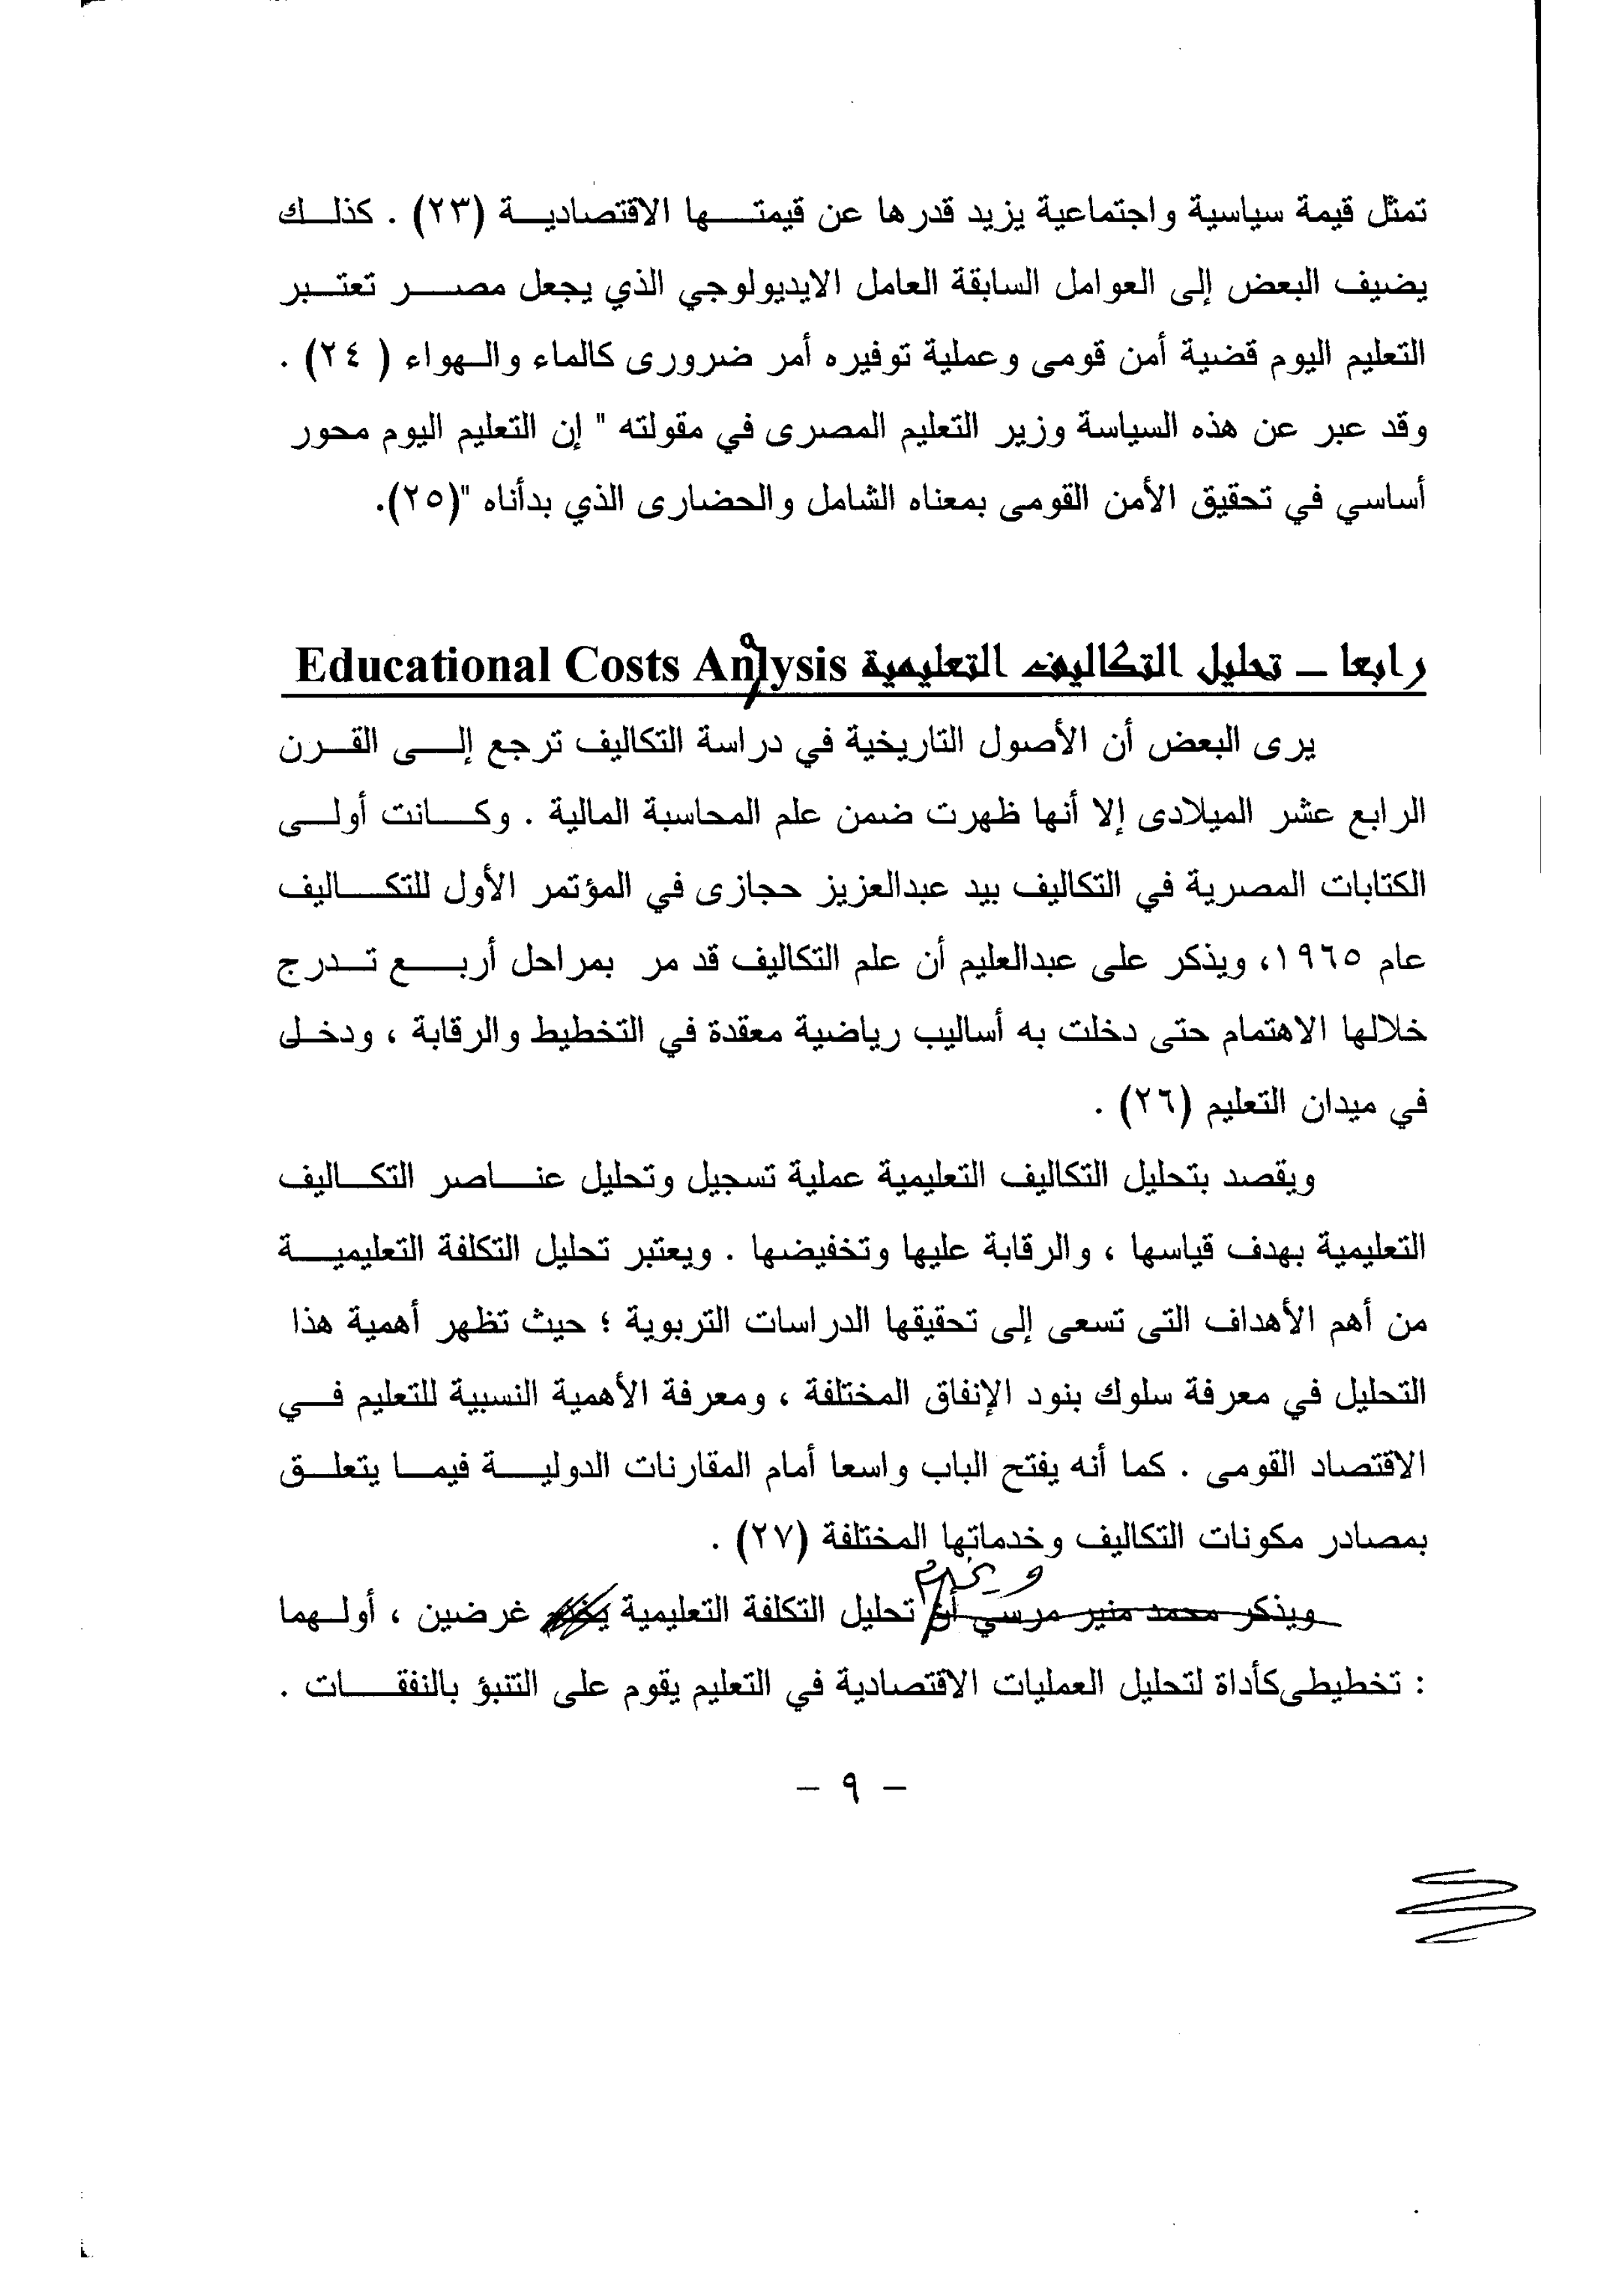 تمثل قيمة سياسية واجتماعية يزيد قدرها عن قيمتها الاقتصادية (٢٣) . كذلك
يضيف البعض إلى العوامل السابقة العامل الايديولوجي الذي يجعل مصر تعتبر
التعليم اليوم قضية أمن قومى وعملية توفيره أمر ضرورى كالماء والهواء ( ٢٤) .
وقد عبر عن هذه السياسة وزير التعليم المصرى في مقولته " إن التعليم اليوم محور
أساسي في تحقيق الأمن القومى بمعناه الشامل والحضارى الذي بدأناه "(٢٥).
رابعا – تحليل التكاليف التعليمية Educational Costs Anlysis
يرى البعض أن الأصول التاريخية في دراسة التكاليف ترجع إلى القرن
الرابع عشر الميلادى إلا أنها ظهرت ضمن علم المحاسبة المالية . وكانت أولى
الكتابات المصرية في التكاليف بيد عبدالعزيز حجازى في المؤتمر الأول للتكاليف
عام ١٩٦٥، ويذكر على عبدالعليم أن علم التكاليف قد مر بمراحل أربع تدرج
خلالها الاهتمام حتى دخلت به أساليب رياضية معقدة في التخطيط والرقابة ، ودخل
في ميدان التعليم (٢٦) .
ويقصد بتحليل التكاليف التعليمية عملية تسجيل وتحليل عناصر التكاليف
التعليمية بهدف قياسها ، والرقابة عليها وتخفيضها . ويعتبر تحليل التكلفة التعليمية
من أهم الأهداف التى تسعى إلى تحقيقها الدراسات التربوية ؛ حيث تظهر أهمية هذا
التحليل في معرفة سلوك بنود الإنفاق المختلفة ، ومعرفة الأهمية النسبية للتعليم في
الاقتصاد القومى . كما أنه يفتح الباب واسعا أمام المقارنات الدولية فيما يتعلق
بمصادر مكونات التكاليف وخدماتها المختلفة (٢٧) .
ويخدم
ويذكر محمد منير مرسي أن تحليل التكلفة التعليمية غرضين ، أولهما
: تخطيطى كأداة لتحليل العمليات الاقتصادية في التعليم يقوم على التنبؤ بالنفقات .
– ٩ –